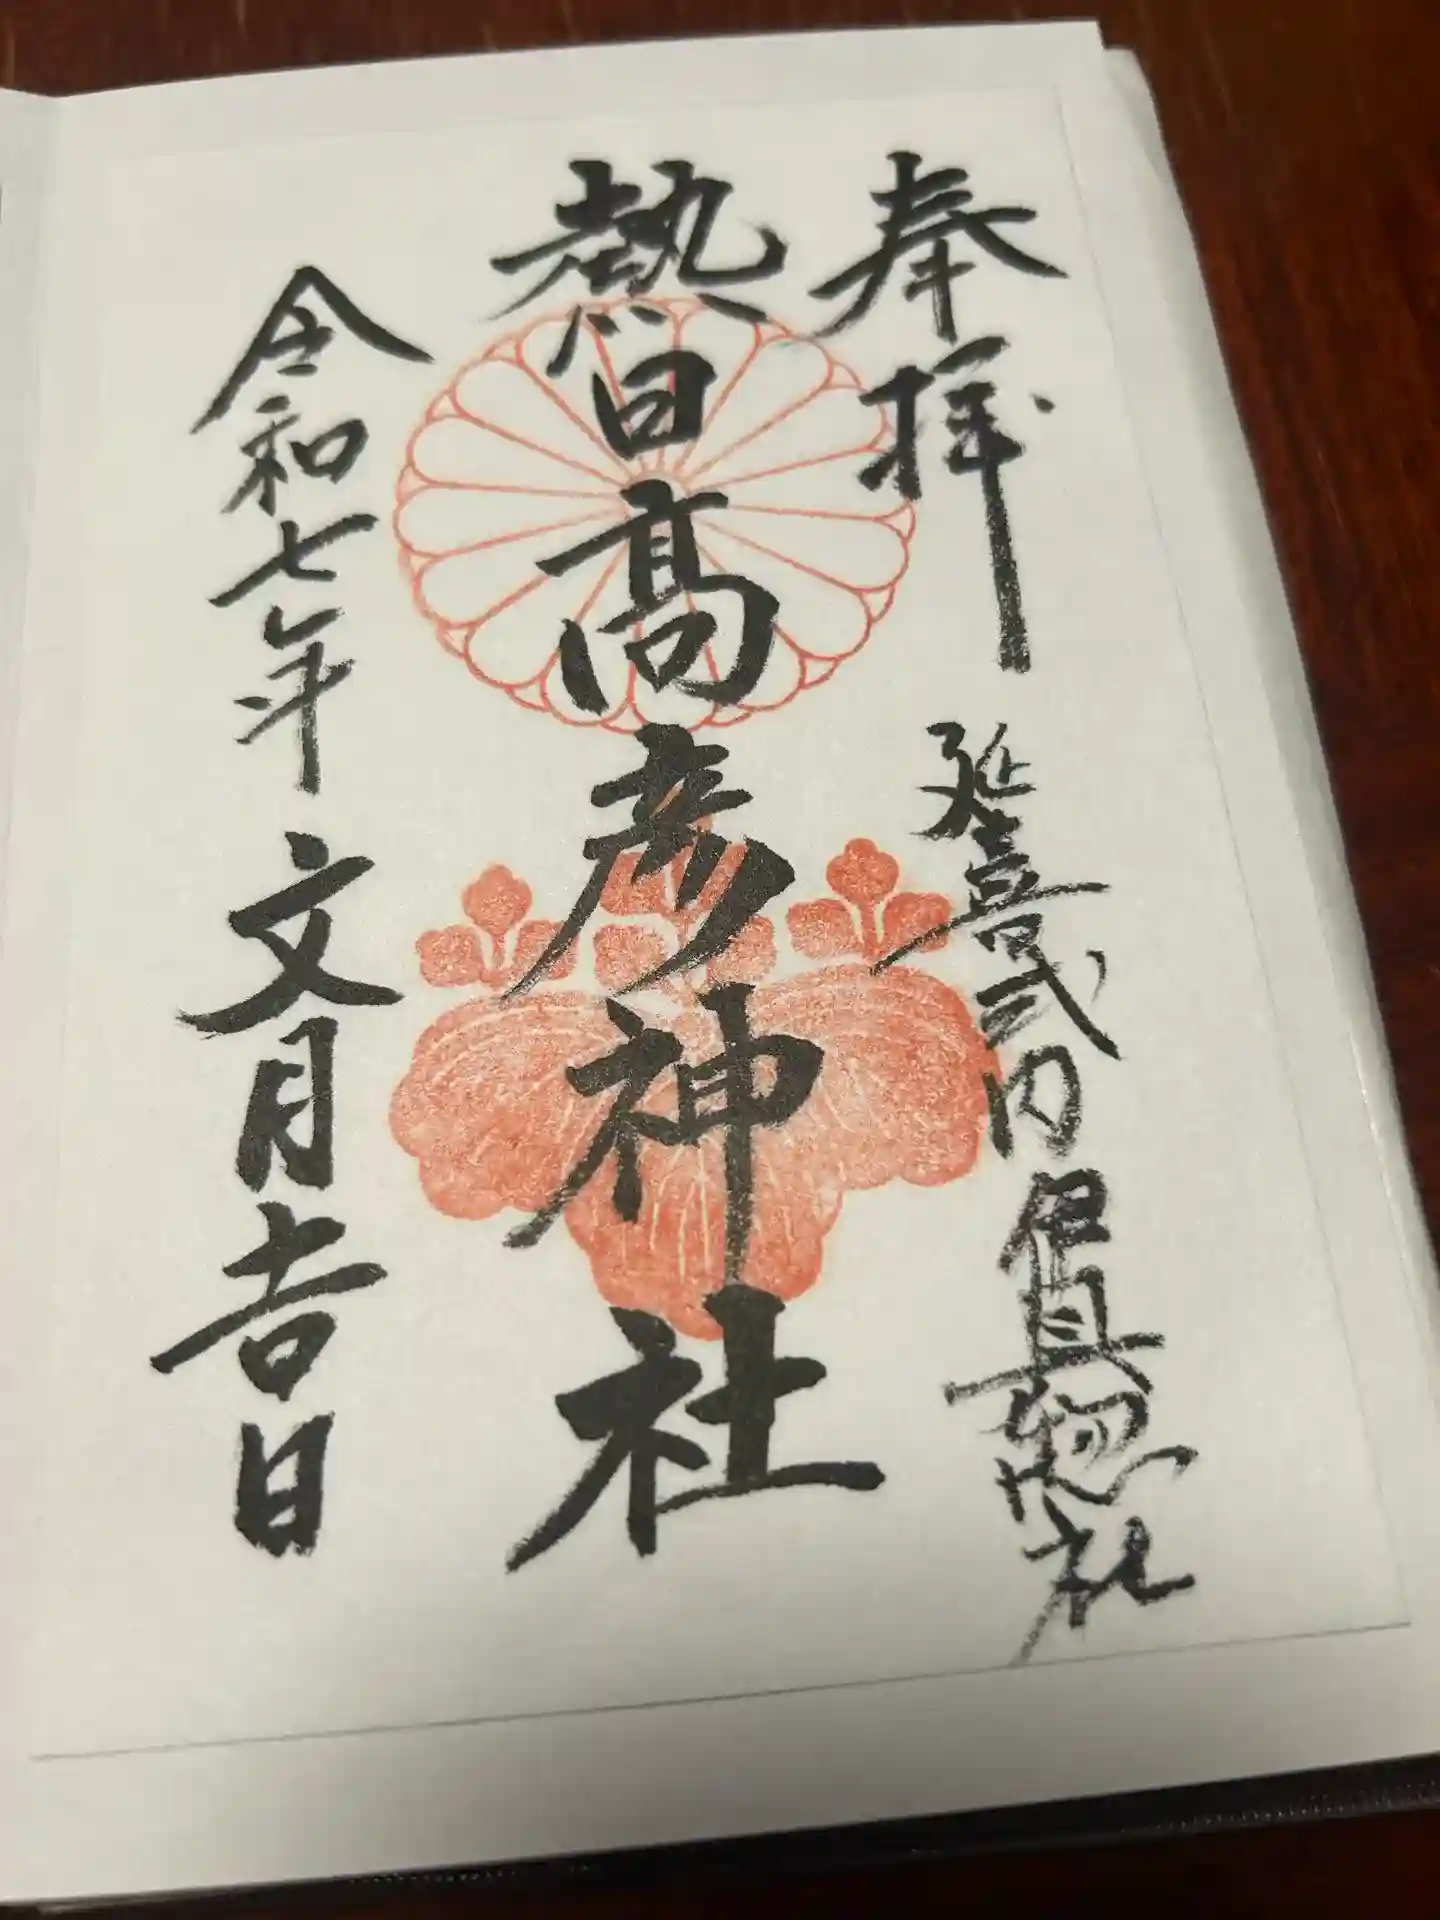 奉拝 延喜式内 伊具惣社
熱日髙彦神社
令和七年 文月吉日